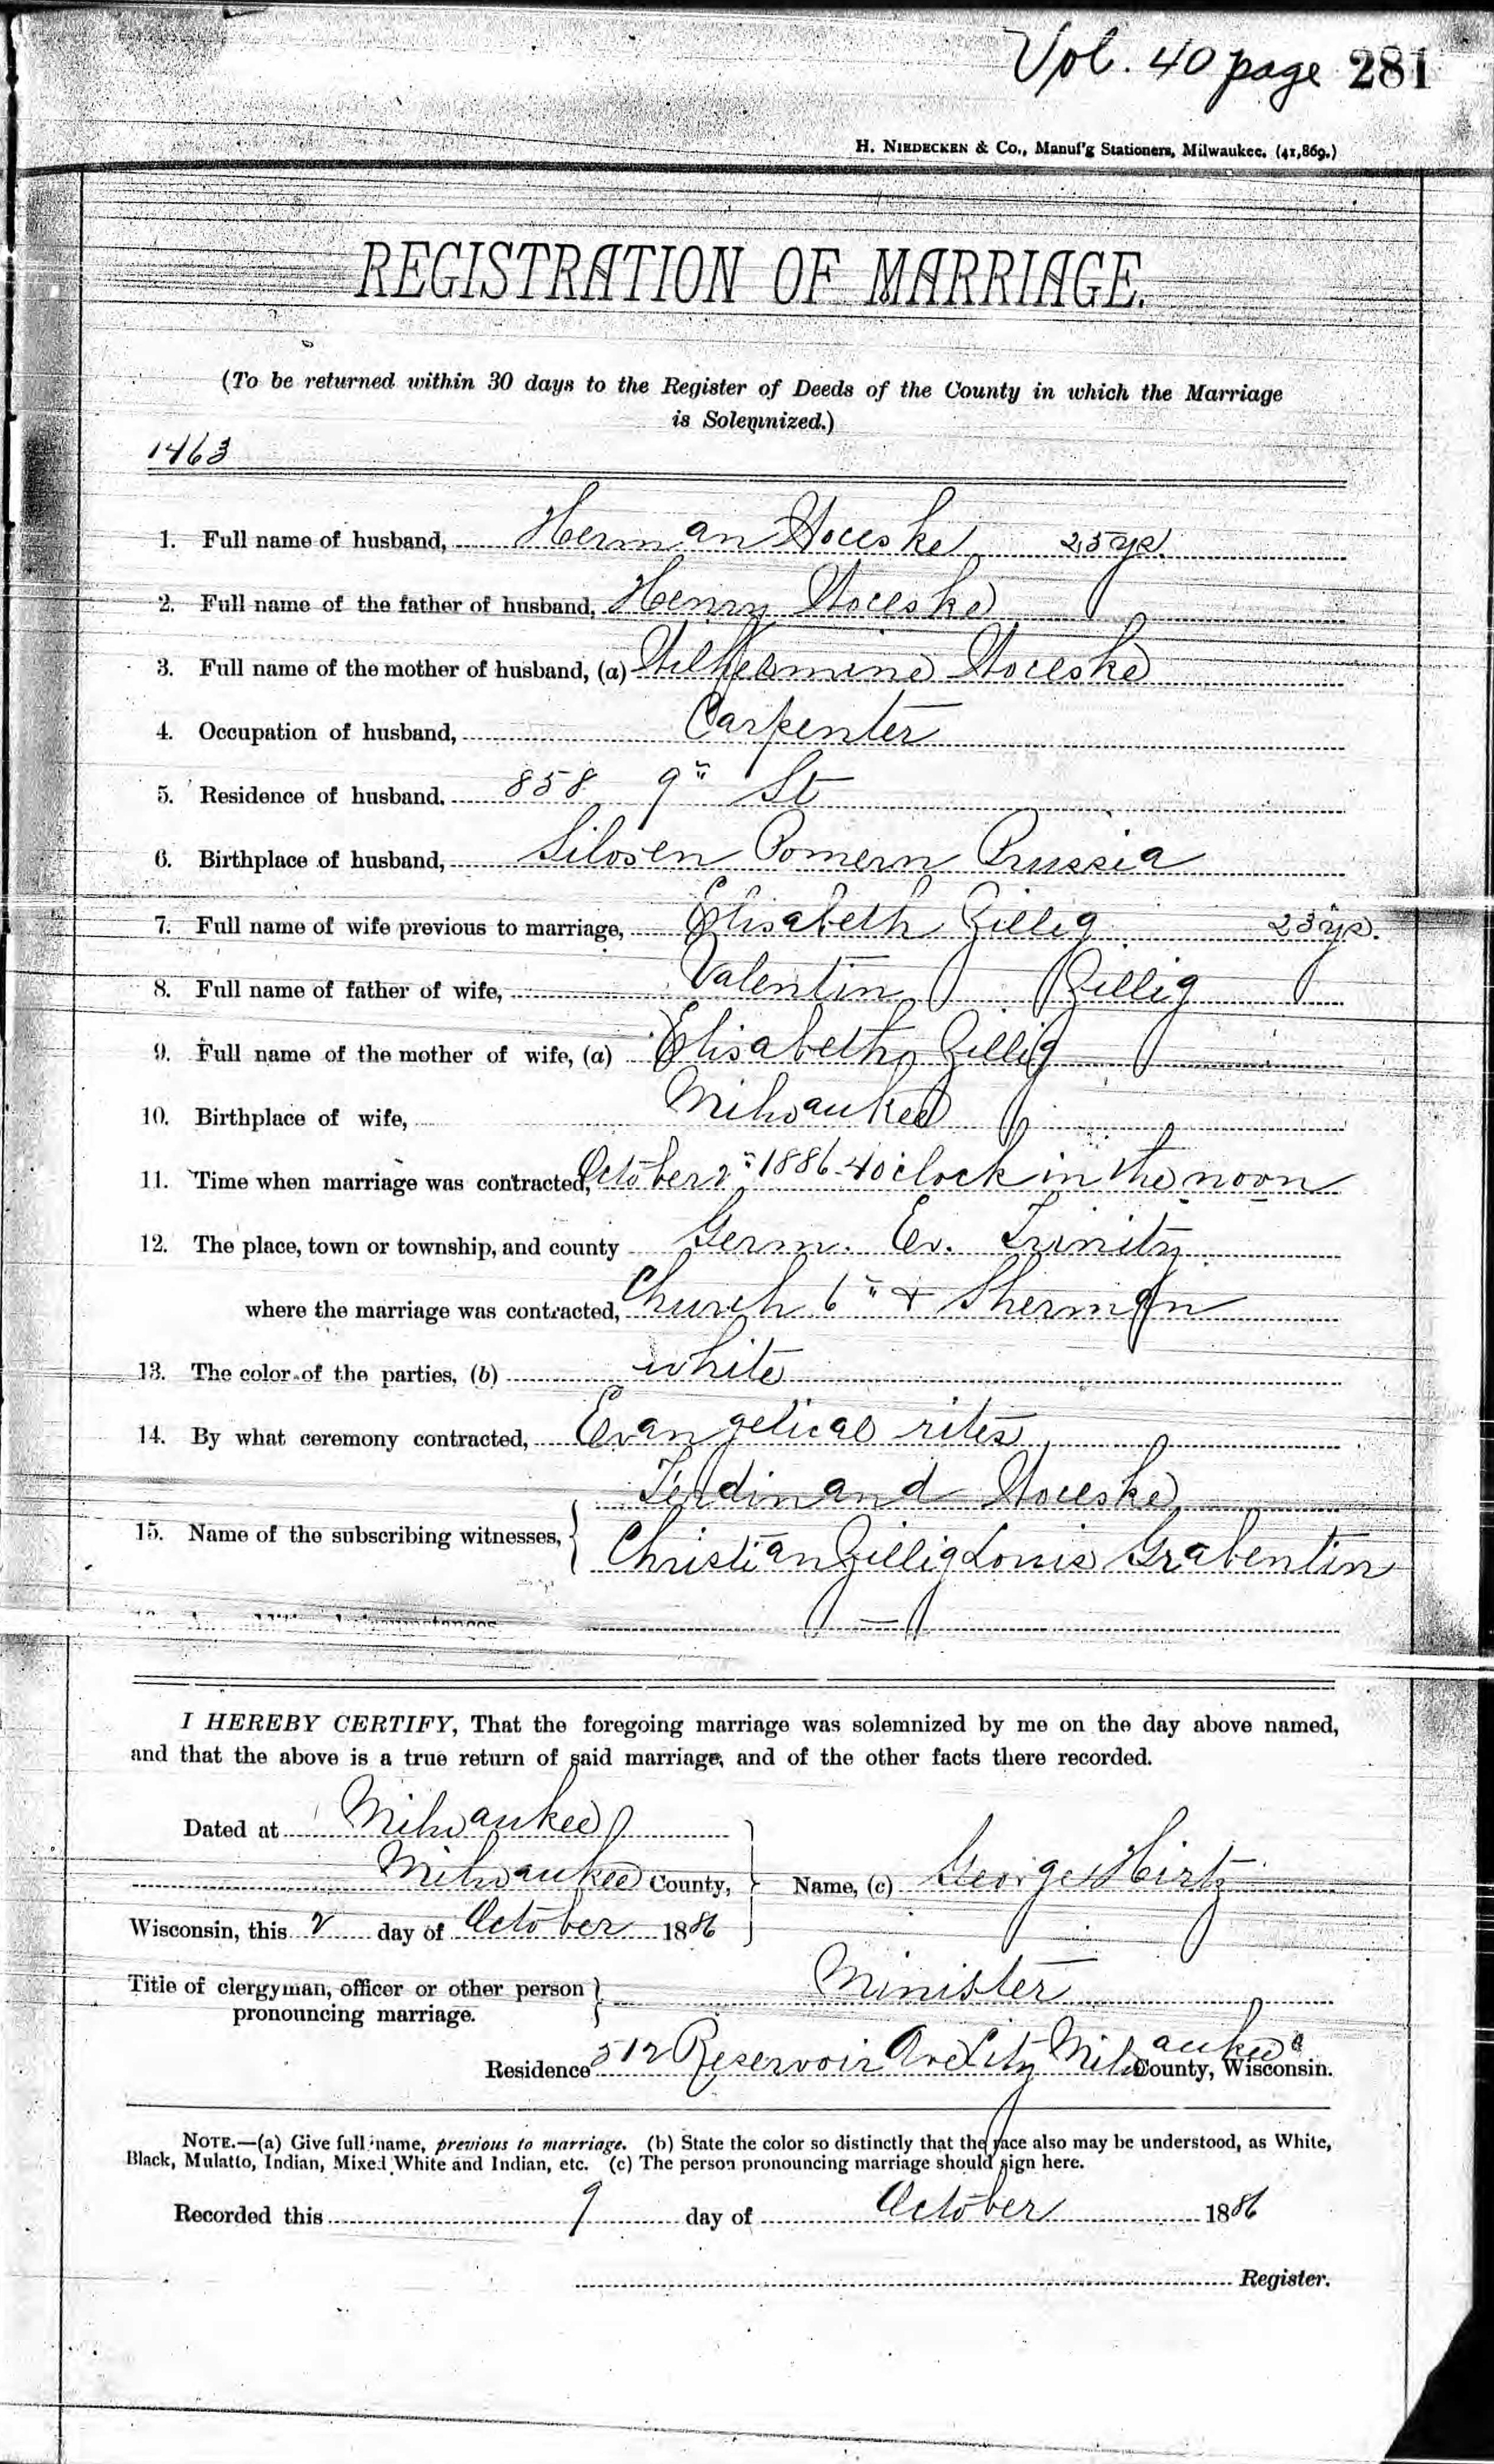 Vol. 40 page 281
H. NIEDECKEN & Co., Manuf'g Stationers, Milwaukee. (41,869.)
REGISTRATION OF MARRIAGE.
(To be returned within 30 days to the Register of Deeds of the County in which the Marriage
is Solemnized.)
1463
1. Full name of husband, Herman 25 yr.
2. Full name of the father of husband, Henry
3. Full name of the mother of husband, (a) Wilhelmine
4. Occupation of husband, Carpenter
5. Residence of husband. 858 9" St
6. Birthplace of husband, Silosen Pomern Prussia
7. Full name of wife previous to marriage, Elisabeth Zillig 23 yr.
8. Full name of father of wife, Valentin Zillig
9. Full name of the mother of wife, (a) Elisabeth Zillig
10. Birthplace of wife, Milwaukee
11. Time when marriage was contracted, October 2" 1886 4 o'clock in the noon
12. The place, town or township, and county Germ. Ev. Trinity
where the marriage was contracted, Church 6" & Sherman
13. The color of the parties, (b) white
14. By what ceremony contracted, Evangelical rites
Ferdinand
15. Name of the subscribing witnesses, Christian Zillig Louis Grabentin
I HEREBY CERTIFY, That the foregoing marriage was solemnized by me on the day above named,
and that the above is a true return of said marriage, and of the other facts there recorded.
Dated at Milwaukee
Milwaukee County, Name, (c) George Hirtz
Wisconsin, this 2 day of October 1886
Title of clergyman, officer or other person Minister
pronouncing marriage.
Residence 512 Reservoir Ave City Milwaukee County, Wisconsin.
NOTE.—(a) Give full name, previous to marriage. (b) State the color so distinctly that the race also may be understood, as White,
Black, Mulatto, Indian, Mixed White and Indian, etc. (c) The person pronouncing marriage should sign here.
Recorded this 9 day of October 1886
Register.